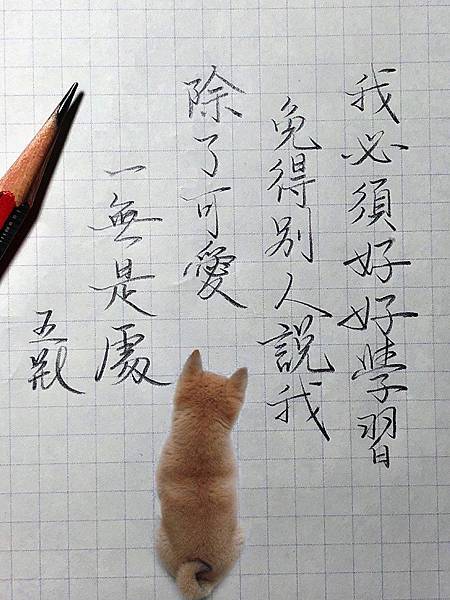 我必須好好學習
免得別人說我
除了可愛
一無是處